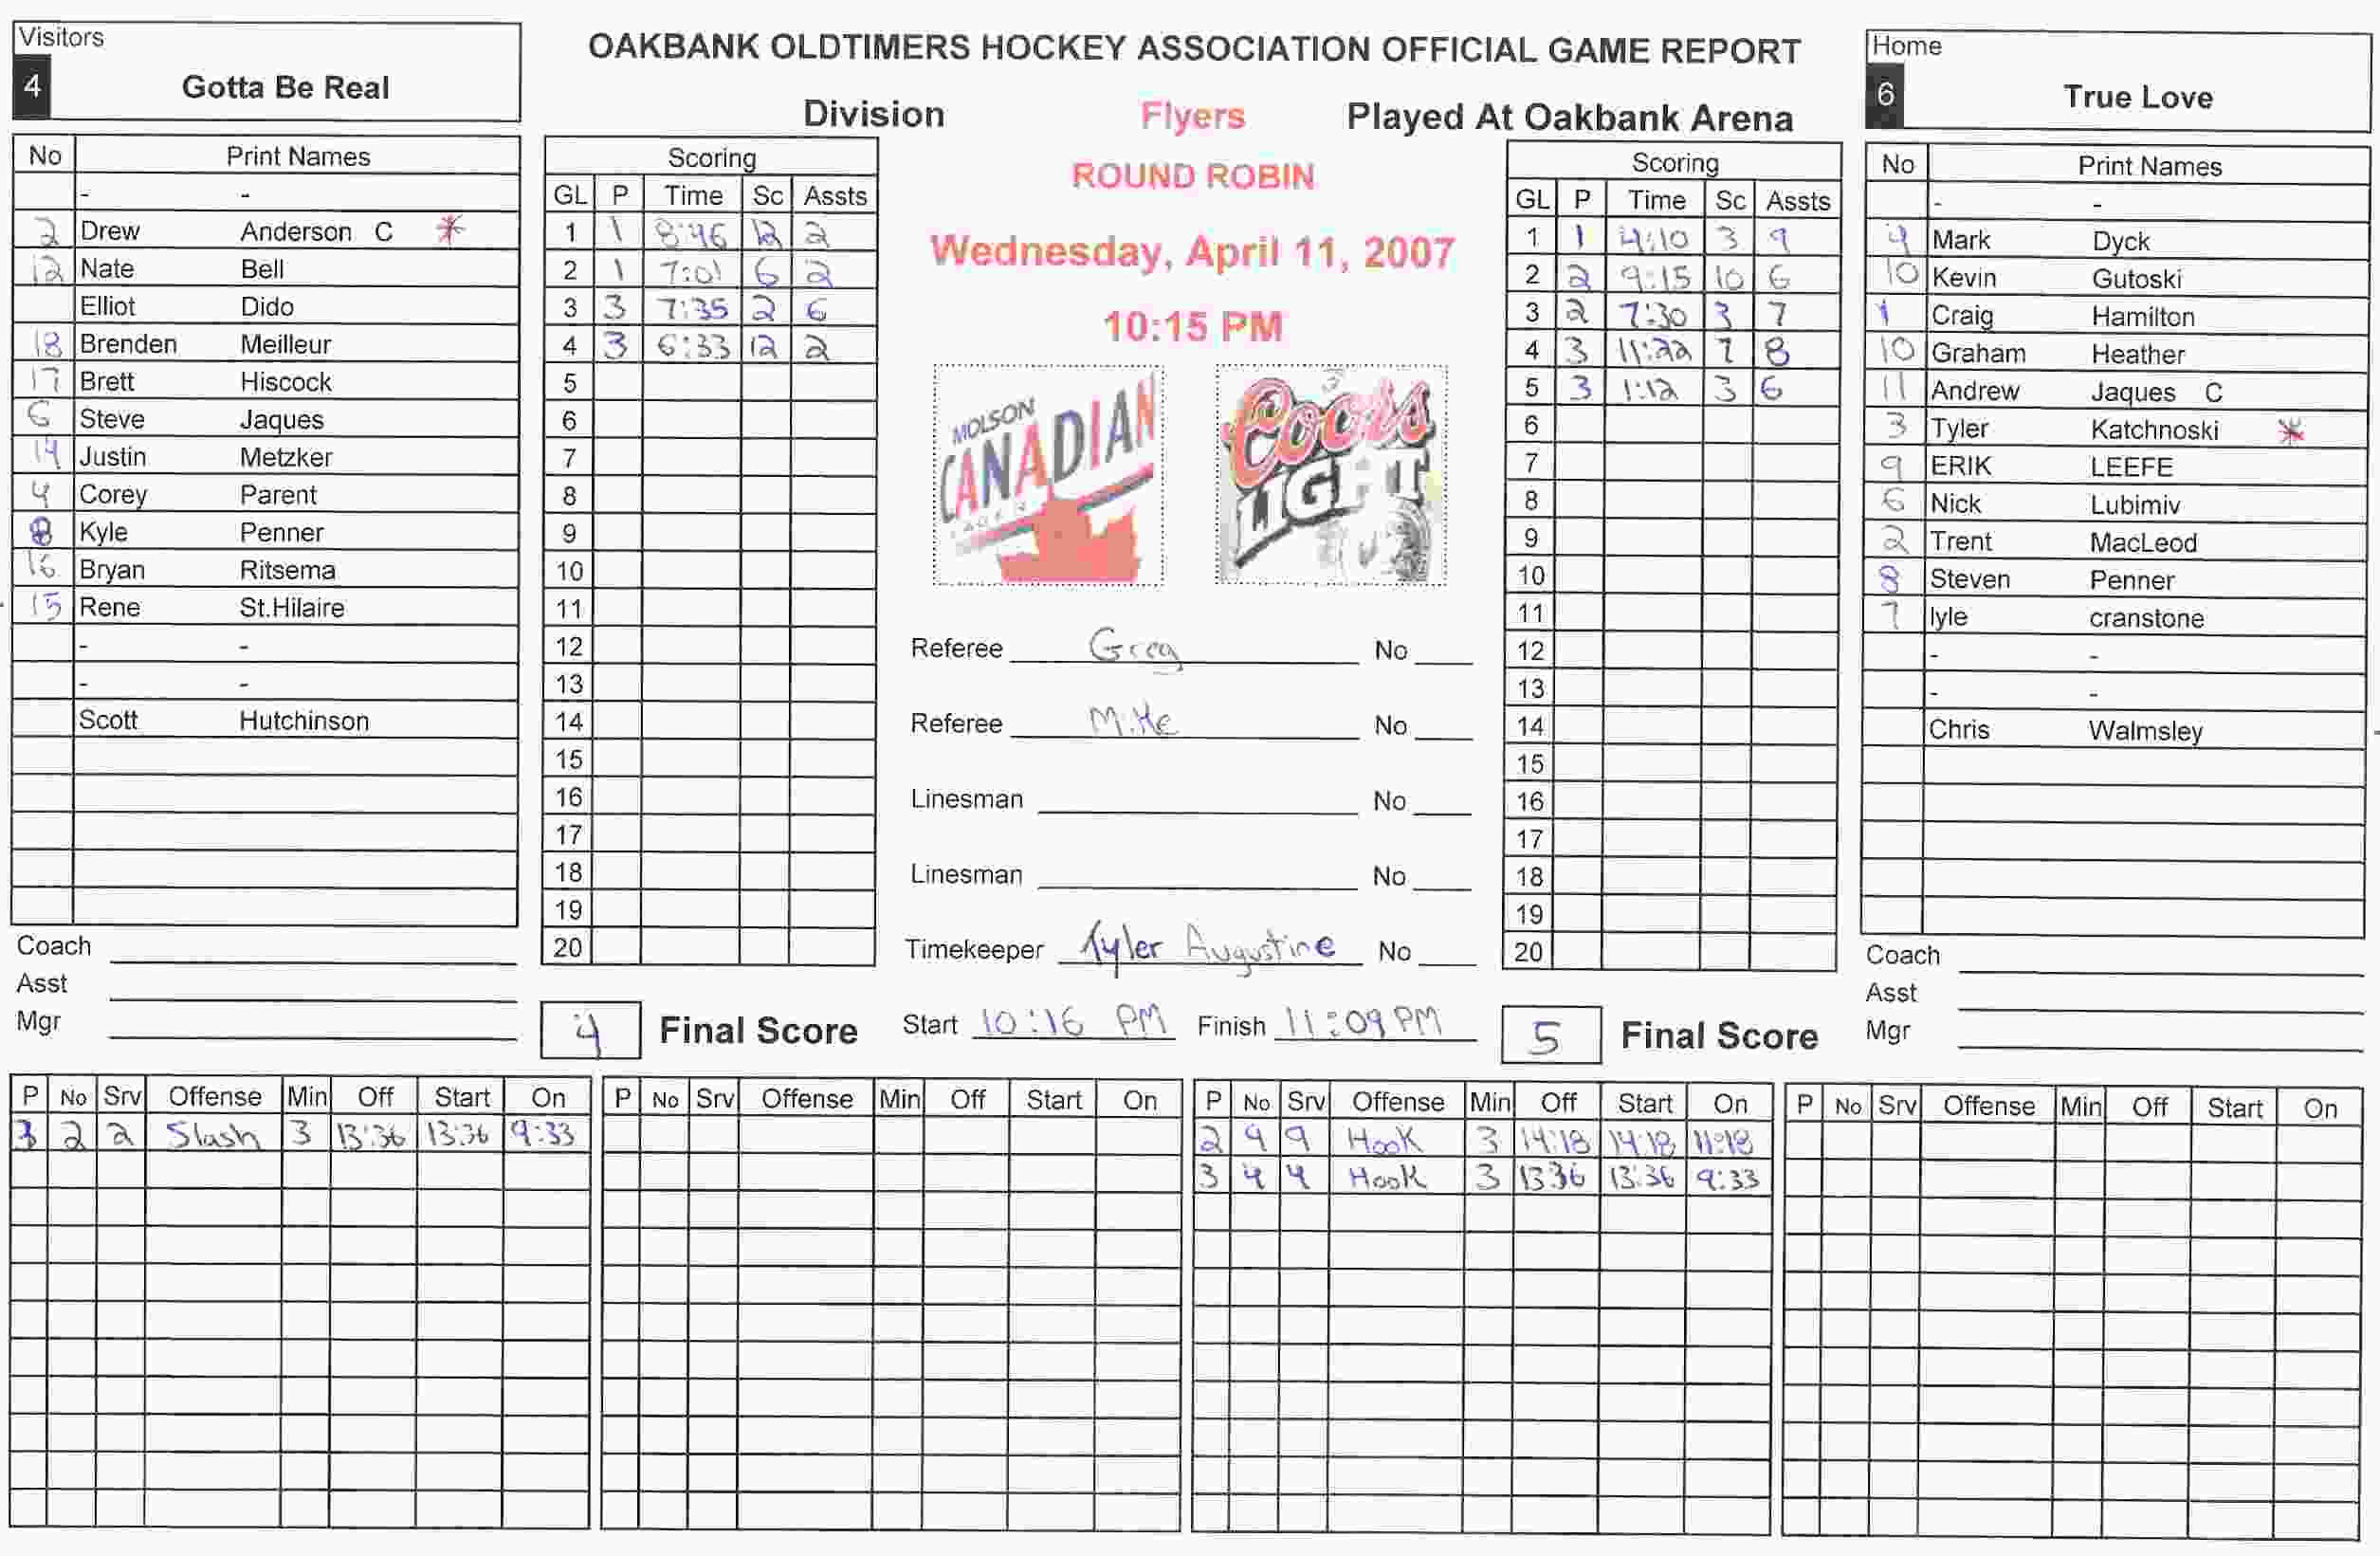 OAKBANK OLDTIMERS HOCKEY ASSOCIATION OFFICIAL GAME REPORT
Division Flyers Played At Oakbank Arena
ROUND ROBIN
Wednesday, April 11, 2007
10:15 PM
Visitors
4 Gotta Be Real
No Print Names
- -
2 Drew Anderson C *
12 Nate Bell
Elliot Dido
18 Brenden Meilleur
17 Brett Hiscock
6 Steve Jaques
14 Justin Metzker
4 Corey Parent
8 Kyle Penner
16 Bryan Ritsema
15 Rene St.Hilaire
- -
- -
Scott Hutchinson
Coach
Asst
Mgr
Scoring
GL P Time Sc Assts
1 1 8:46 12 2
2 1 7:01 6 2
3 3 7:35 2 6
4 3 6:33 12 2
5
6
7
8
9
10
11
12
13
14
15
16
17
18
19
20
4 Final Score
MOLSON
CANADIAN
Coors
LIGHT
Referee Greg No
Referee Mike No
Linesman No
Linesman No
Timekeeper Tyler Augustine No
Start 10:16 PM Finish 11:09 PM
Scoring
GL P Time Sc Assts
1 1 4:10 3 9
2 2 9:15 10 6
3 2 7:30 3 7
4 3 11:22 7 8
5 3 1:12 3 6
6
7
8
9
10
11
12
13
14
15
16
17
18
19
20
5 Final Score
Home
6 True Love
No Print Names
- -
4 Mark Dyck
10 Kevin Gutoski
1 Craig Hamilton
10 Graham Heather
11 Andrew Jaques C
3 Tyler Katchnoski *
9 ERIK LEEFE
6 Nick Lubimiv
2 Trent MacLeod
8 Steven Penner
7 lyle cranstone
- -
- -
Chris Walmsley
Coach
Asst
Mgr
P No Srv Offense Min Off Start On
3 2 2 Slash 3 13:36 13:36 9:33
P No Srv Offense Min Off Start On
P No Srv Offense Min Off Start On
2 9 9 Hook 3 14:18 14:18 11:18
3 4 4 Hook 3 1336 13:36 9:33
P No Srv Offense Min Off Start On